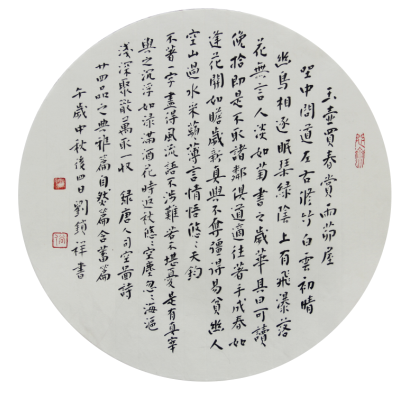 玉壺買春賞雨茅屋
坐中間道左右脩竹白雲初晴
幽鳥相逐眠琴綠陰上有飛瀑落
花無言人淡如菊書之歲華其曰可讀
俯拾即是不取諸鄰俱道適往著手成春如
逢花開如瞻歲新真與不奪彊得易貧幽人
空山過水采蘋薄言情悟悠〻天鈞
不著一字盡得風流語不涉難若不堪憂是有真宰
與之沉浮如淥滿酒花時返秋悠〻空塵忽〻海漚
淺深聚散萬取一收 錄唐人司空圖詩
廿四品之典雅篇自然篇含蓄篇
午歲中秋後四日劉祥書